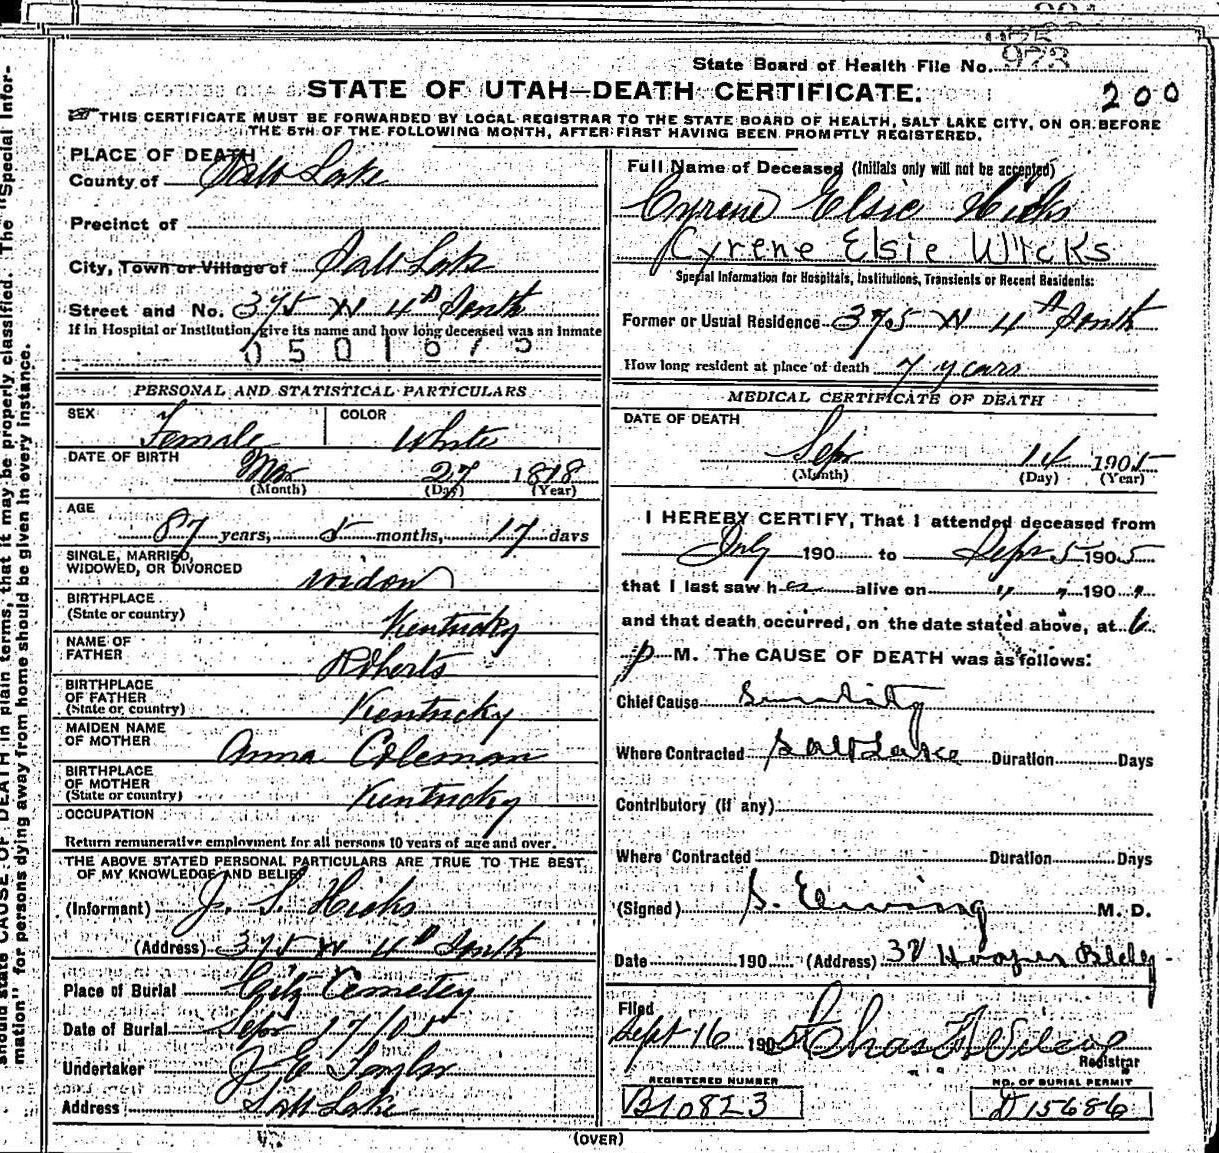 973
State Board of Health File No.
STATE OF UTAH—DEATH CERTIFICATE.
200
THIS CERTIFICATE MUST BE FORWARDED BY LOCAL REGISTRAR TO THE STATE BOARD OF HEALTH, SALT LAKE CITY, ON OR BEFORE
THE 5TH OF THE FOLLOWING MONTH, AFTER FIRST HAVING BEEN PROMPTLY REGISTERED.
PLACE OF DEATH
County of Salt Lake
Precinct of
City, Town or Village of Salt Lake
Street and No. 375 W 4th South
If in Hospital or Institution, give its name and how long deceased was an inmate
0501675
PERSONAL AND STATISTICAL PARTICULARS
SEX Female COLOR White
DATE OF BIRTH
Mar 27 1818
(Month) (Day) (Year)
AGE
87 years, 5 months, 17 days
SINGLE, MARRIED,
WIDOWED, OR DIVORCED widow
BIRTHPLACE
(State or country) Kentucky
NAME OF
FATHER Roberts
BIRTHPLACE
OF FATHER
(State or country) Kentucky
MAIDEN NAME
OF MOTHER Anna Coleman
BIRTHPLACE
OF MOTHER
(State or country) Kentucky
OCCUPATION
Return remunerative employment for all persons 10 years of age and over.
THE ABOVE STATED PERSONAL PARTICULARS ARE TRUE TO THE BEST
OF MY KNOWLEDGE AND BELIEF
(Informant) J. S. Hicks
(Address) 375 W 4th South
Place of Burial City Cemetery
Date of Burial Sept 17/05
Undertaker J E Taylor
Address Salt Lake
Full Name of Deceased (Initials only will not be accepted)
Cyrene Elsie Hicks
Cyrene Elsie Wicks
Special Information for Hospitals, Institutions, Transients or Recent Residents:
Former or Usual Residence 375 W 4th South
How long resident at place of death 7 years
MEDICAL CERTIFICATE OF DEATH
DATE OF DEATH
Sep 14 1905
(Month) (Day) (Year)
I HEREBY CERTIFY, That I attended deceased from
July 190 to Sept 5 1905
that I last saw her alive on " " 190 "
and that death occurred, on the date stated above, at 6
p M. The CAUSE OF DEATH was as follows:
Chief Cause Senility
Where Contracted Salt Lake Duration Days
Contributory (if any)
Where Contracted Duration Days
(Signed) S. Ewing M. D.
Date 190 (Address) Hooper Bldg
Filed
Sept 16 1905 Chas Wilcox
Registrar
REGISTERED NUMBER
B10823
NO. OF BURIAL PERMIT
D15686
(OVER)
should state CAUSE OF DEATH in plain terms, that it may be properly classified. The "Special Infor-
mation" for persons dying away from home should be given in every instance.